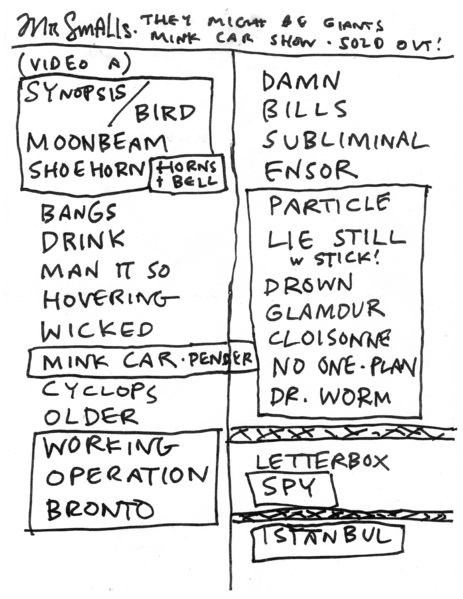 Mr Smalls. THEY MIGHT BE GIANTS
MINK CAR SHOW · SOLD OUT!
(VIDEO A)
SYNOPSIS / BIRD
MOONBEAM
SHOEHORN HORNS + BELL
BANGS
DRINK
MAN IT SO
HOVERING
WICKED
MINK CAR · PENDER
CYCLOPS
OLDER
WORKING
OPERATION
BRONTO
DAMN
BILLS
SUBLIMINAL
ENSOR
PARTICLE
LIE STILL
W STICK!
DROWN
GLAMOUR
CLOISONNE
NO ONE · PLAN
DR. WORM
LETTERBOX
SPY
ISTANBUL